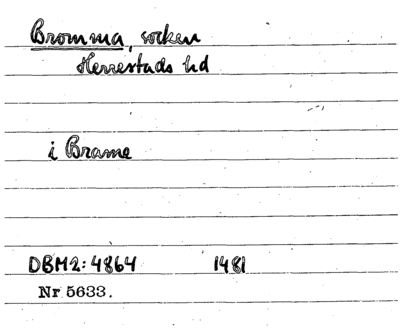 Bromma, socken
Herrestads hd
i Brame
DBM2:4864 1481
Nr 5633.